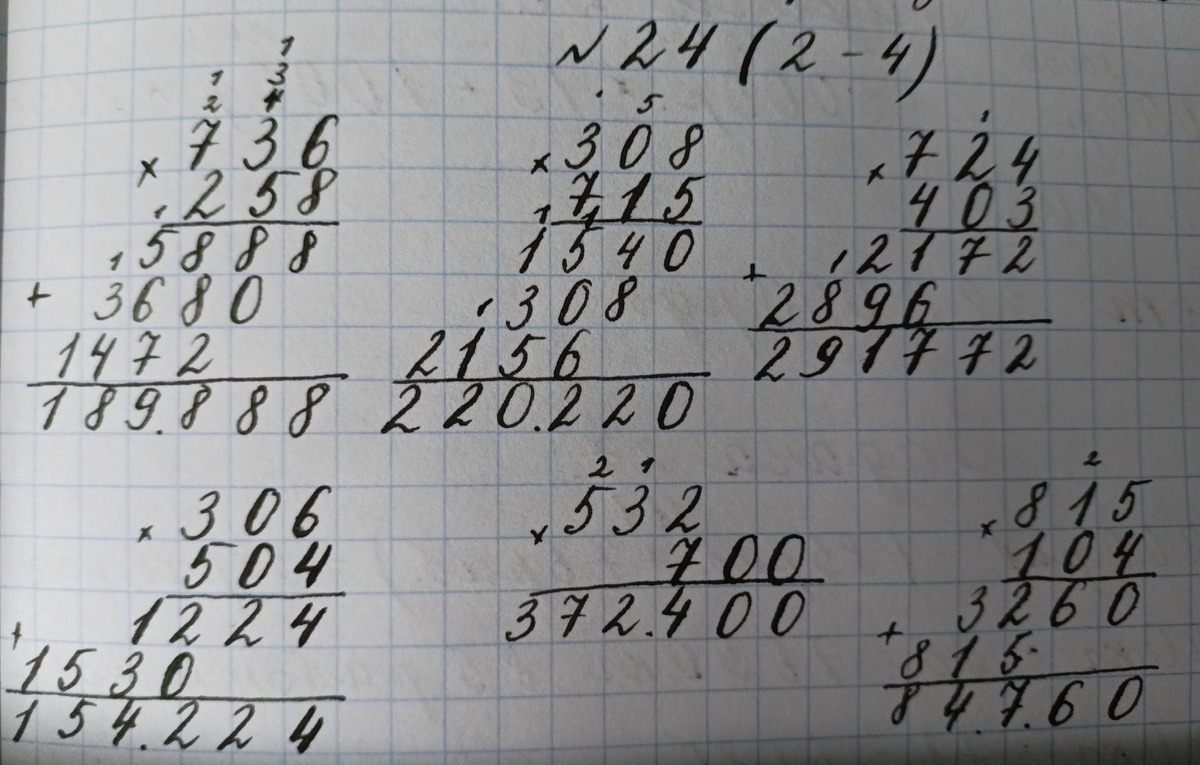 № 24 (2 - 4)
1
1 3
2 4
× 736
258
5888
+ 3680
1472
189.888
5
× 308
715
1540
308
2156
220.220
× 724
403
+ 2172
2896
291772
× 306
504
+ 1224
1530
154.224
2 1
× 532
700
372.400
2
× 815
104
+ 3260
815
84.7.60